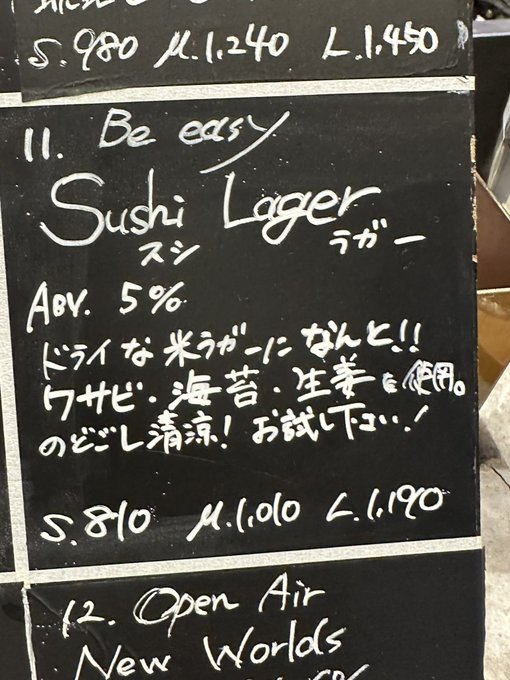 S.980 M.1,240 L.1,450
11. Be easy
Sushi Lager
スシ ラガー
ABV. 5%
ドライな米ラガーになんと!!
ワサビ・海苔・生姜を使用。
のどごし清涼! お試し下さい!
S.810 M.1,010 L.1,190
12. Open Air
New Worlds